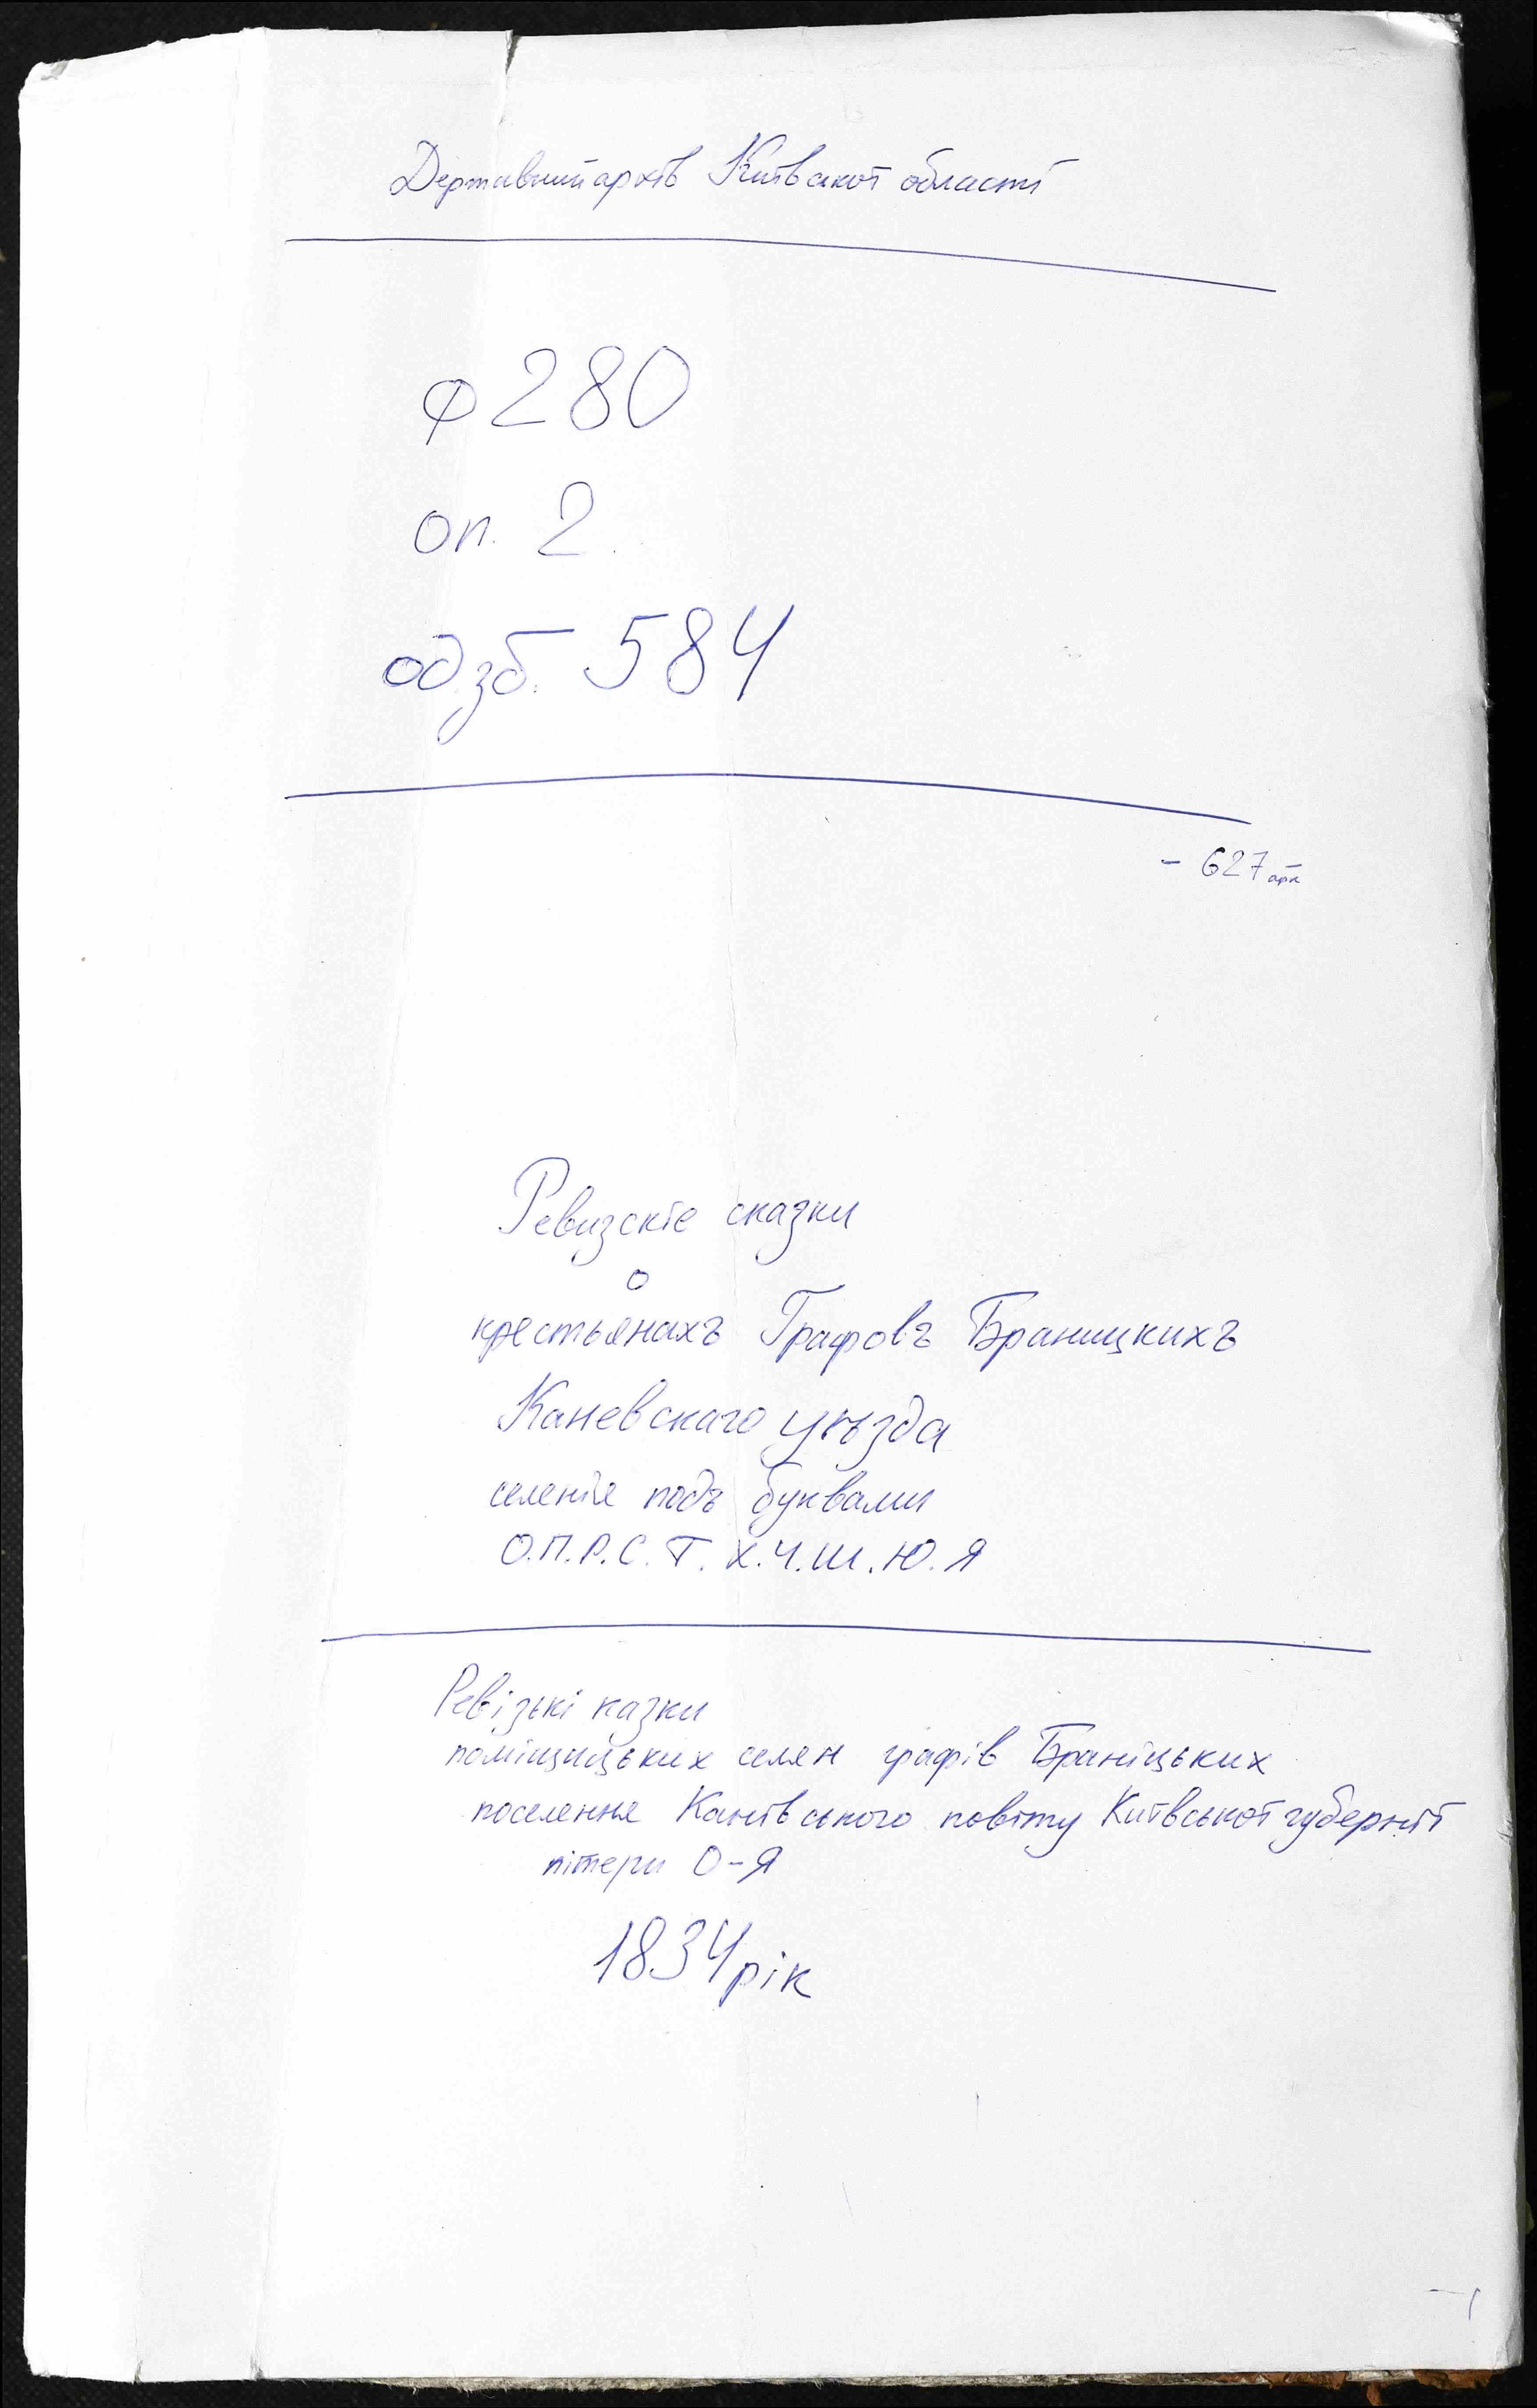 Державний архів Київської області
ф 280
оп. 2.
од.зб. 584
- 627 арк
Ревизскіе сказки
о
крестьянахъ Графовъ Браницкихъ
Каневскаго уѣзда
селенія подъ буквами
О.П.Р.С.Т.Х.Ч.Ш.Ю.Я
Ревізькі казки
поміщицьких селян графів Браніцьких
поселення Канівського повіту Київської губернії
літери О-Я
1834 рік